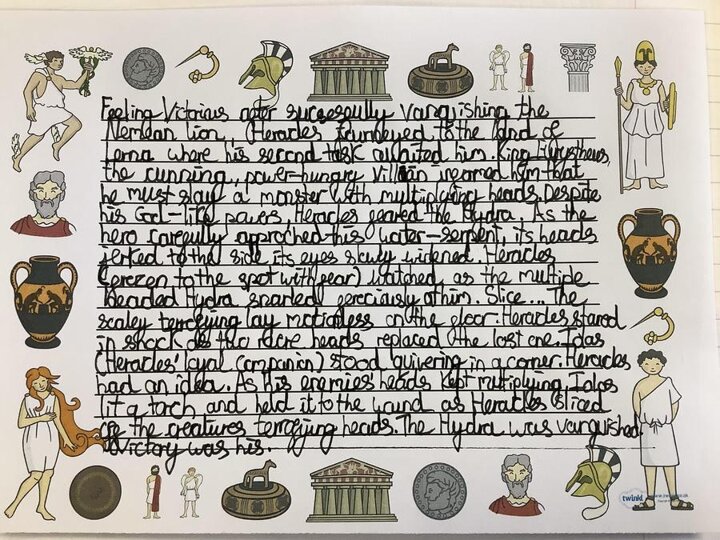 Feeling Vitorius after succesfully vanquishing the
Nemean lion, Heracles journeyed to the land of
Lerna where his second task awaited him. King Eurystheus,
the cunning, power-hungry villain informed him that
he must slay a monster with multiplying heads. Despite
his God-like powers, Heracles feared the Hydra. As the
hero carefully approched this water-serpent, its heads
jerked to the side, its eyes slowly widened. Heracles
(frozen to the spot with fear) watched, as the multide
Headed Hydra snarled ferociously at him. Slice... The
scaley terrofying lay motionless on the floor. Heracles stared
in shock as two more heads replaced the last one. Iolas
(Heracles' loyal companion) stood quivering in a corner. Heracles
had an idea. As his enemies heads kept multiplying, Iolas
lit a torch and held it to the wound as Heracles sliced
off the creatures terrofying heads. The Hydra was vanquished.
Victory was his.
twinkl